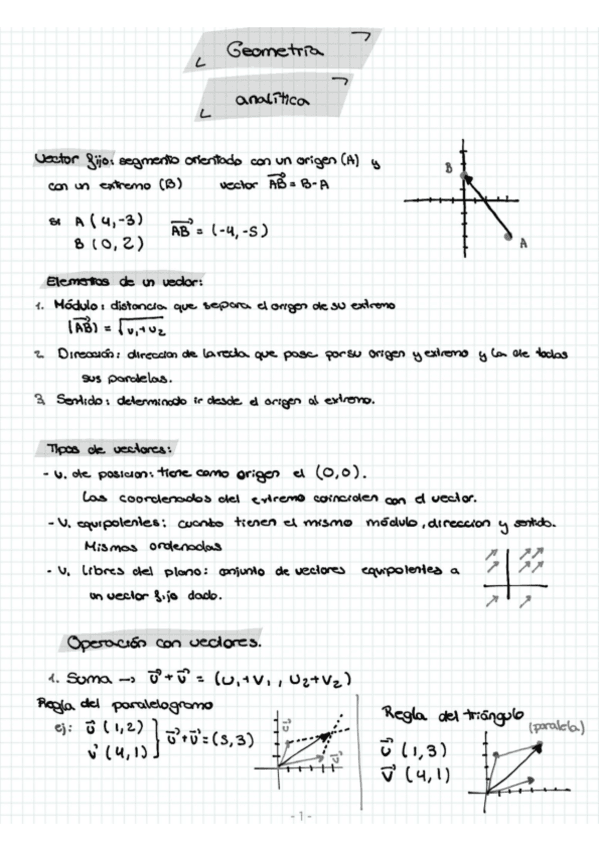 Geometría
analítica
Vector fijo: segmento orientado con un origen (A) y
con un extremo (B) vector AB⃗ = B-A
si A (4,-3) AB⃗ = (-4,-5)
B (0,2)
B
A
Elementos de un vector:
1. Módulo: distancia que separa el origen de su extremo
|AB⃗| = √v₁+v₂
2. Dirección: direccion de la recta que pasa por su origen y extremo y la de todas
sus paralelas.
3. Sentido: determinado ir desde el origen al extremo.
Tipos de vectores:
- v. de posicion: tiene como origen el (0,0).
Las coordenadas del extremo coinciden con el vector.
- V. equipolentes: cuando tienen el mismo módulo, direccion y sentido.
Mismas ordenadas
- V. libres del plano: conjunto de vectores equipolentes a
un vector fijo dado.
Operación con vectores.
1. Suma → u⃗+v⃗ = (u₁+v₁, u₂+v₂)
Regla del paralelogramo
ej: u⃗ (1,2) u⃗+v⃗=(5,3)
v⃗ (4,1)
u⃗
v⃗
Regla del triángulo
(paralela)
u⃗ (1,3)
v⃗ (4,1)
- 1 -